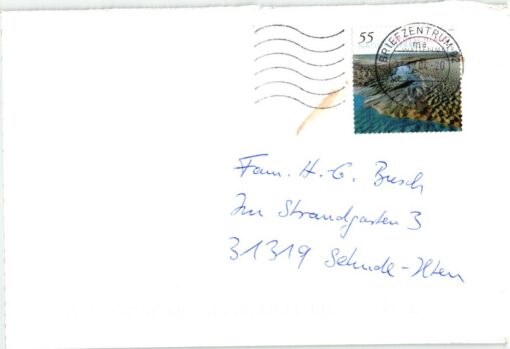 55
BRIEFZENTRUM
Fam. H. G. Busch
Im Strandgarten 3
31319 Sehnde-Ilten